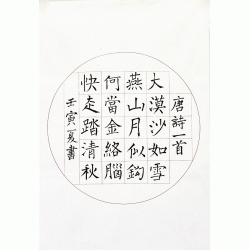 唐詩一首
大漠沙如雪
燕山月似鈎
何當金絡腦
快走踏清秋
壬寅夏書